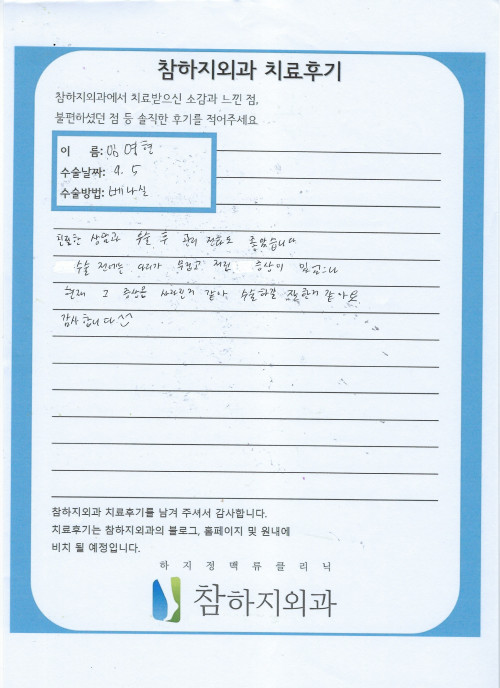 참하지외과 치료후기
참하지외과에서 치료받으신 소감과 느낀 점,
불편하셨던 점 등 솔직한 후기를 적어주세요
이 름: 임영현
수술날짜: 9. 5
수술방법: 베나실
친절한 상담과 수술 후 관리 전화도 좋았습니다
수술 전에는 다리가 무겁고 저린 증상이 있었으나
현재 그 증상은 사라진거 같아 수술하길 잘한거 같아요
감사합니다 ^^
참하지외과 치료후기를 남겨 주셔서 감사합니다.
치료후기는 참하지외과의 블로그, 홈페이지 및 원내에
비치 될 예정입니다.
하지정맥류클리닉
참하지외과